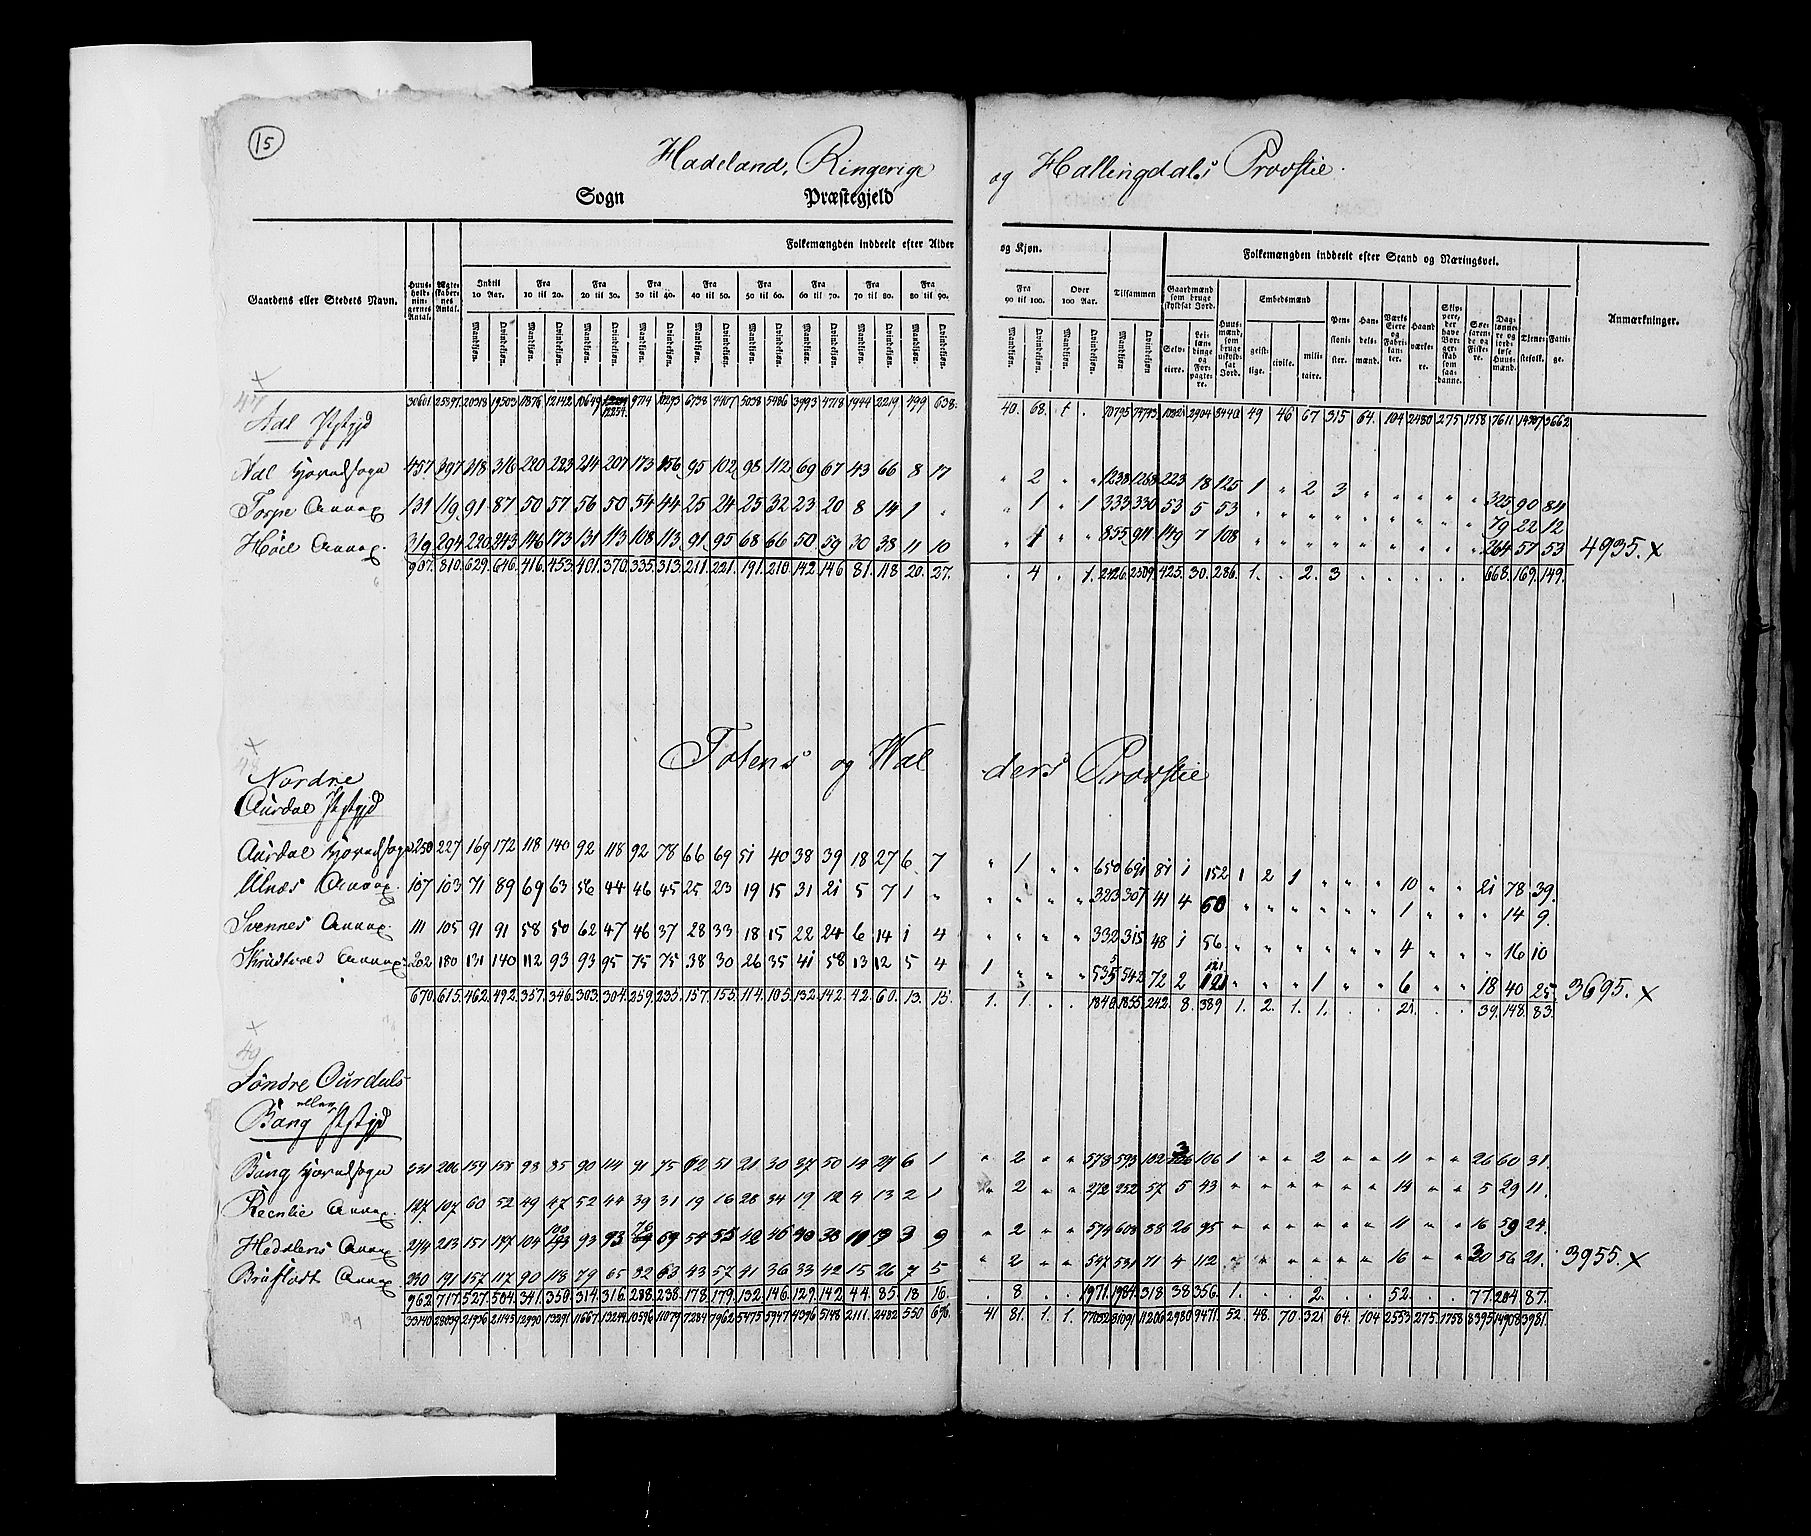 15
Hadeland, Ringerige og Hallingdals Provstie.
Sogn Præstegjeld
Gaardens eller Stedets Navn.
Huus-holdnin-gernes Antal.
Ægte-skaber-nes Antal.
Folkemængden inddeelt efter Alder og Kjøn.
Indtil 10 Aar. Fra 10 til 20. Fra 20 til 30. Fra 30 til 40. Fra 40 til 50. Fra 50 til 60. Fra 60 til 70. Fra 70 til 80. Fra 80 til 90. Fra 90 til 100. Over 100 Aar. Tilsammen
Mandkjøn. Qvindekjøn. Mandkjøn. Qvindekjøn. Mandkjøn. Qvindekjøn. Mandkjøn. Qvindekjøn. Mandkjøn. Qvindekjøn. Mandkjøn. Qvindekjøn. Mandkjøn. Qvindekjøn. Mandkjøn. Qvindekjøn. Mandkjøn. Qvindekjøn. Mandkjøn. Qvindekjøn. Mandkjøn. Qvindekjøn. Mandkjøn. Qvindekjøn.
Folkemængden inddeelt efter Stand og Næringsvei.
Gaardmænd som bruge skyldsat Jord.
Selv-eiere. Lei-læn-dinge og For-pagte-re.
Huus-mænd, som bruge uskyld-sat Jord.
Embedsmænd
geist-lige. civile. mili-taire.
Pen-sioni-ster. Han-dels-mænd. Værks Eiere og Fabri-kan-ter. Haand værke-re. Skip-pere, der have Bor-ger-skab som saa-danne. Søe-faren-de og Fiske-re. Dag-lønne-re og jord-løse Huus-mænd. Tjene-stefolk. Fatti-ge.
Anmærkninger.
47
30601 25897 20318 19503 11876 12142 10649 12254 9704 10293 6738 7407 5038 5486 3993 4718 1944 2219 499 638. 40. 68. 1 . 70795 74773 8440 49 46 67 315 64. 104 2480 275 1758 7611 14307 3662
Aal Pstgjd
Aal Hovedsogn 457 397 318 316 220 223 214 207 173 156 95 102 98 112 69 67 43 66 8 17 " 2 " " 1238 1268 223 18 125 1 " 2 3 " " " " " 325 90 84
Torpe Annex 131 119 91 87 50 57 56 50 54 44 25 24 25 32 23 20 8 14 1 " " 1 " 1 333 330 53 5 53 " " " " " " " " " 79 22 12
Hoel Annex 319 294 220 243 146 173 131 113 108 113 91 95 68 66 50 59 30 38 11 10 " 1 " " 855 911 149 7 108 " " " " " " " " " 264 57 53 4935. x
907. 810. 629. 646. 416. 453. 401. 370. 335. 313. 211. 221. 191. 210. 142. 146 81. 118 20. 27. . 4 . 1. 2426. 2509. 425. 30. 286. 1. . 2. 3 . . . . . 668. 169. 149.
Totens og Walders Provstie
48
Nordre
Aurdal Pstgjd
Aurdal Hovedsogn 250 227 169 172 118 140 92 118 92 78 66 69 51 40 38 39 18 27 6 7 " 1 " " 650 691 81 1 152 1 2 1 " " " 10 " " 21 78 39.
Ulnæs Annex. 107 103 71 89 69 63 56 44 46 45 25 23 19 15 31 21 5 7 1 " " " " " 323 307 41 4 60 " " " " " " 1 " " " 14 9.
Svennes Annex. 111 105 91 91 58 50 62 47 46 37 28 33 18 15 22 24 6 14 1 4 " " " " 332 315 48 1 56 " " " " " " 4 " " " 16 10
Skrudtvold Annex 202 180 131 140 112 93 93 95 75 75 38 30 26 35 41 58 13 12 5 4 1 " " " 535 542 72 2 121 " " " 1 " " 6 " " 18 40 25. 3695. x
670. 615. 462. 492. 357. 346. 303. 304. 259. 235. 157. 155. 114. 105. 132. 142. 42. 60. 13. 15. 1. 1. . . 1840 1855 242. 8. 389 1. 2. 1. 1. . . 21. . . 39. 148. 83.
49
Søndre Ourdals
eller
Bang Pstgjd
Bang Hovedsogn 331 206 159 158 98 85 90 114 91 75 62 51 21 30 37 50 14 27 6 1 " 2 " " 578 593 102 3 106 1 " " 2 " " 11 " " 26 60 31.
Reenlie Annex. 127 107 60 52 49 47 52 44 39 31 19 16 28 34 19 12 4 13 2 1 " 2 " " 272 252 57 5 43 " " " " " " 14 " " 5 29 11.
Hedalens Annex. 274 213 151 177 104 100 93 93 76 69 54 55 42 46 40 38 11 19 3 9 " 2 " " 574 608 88 26 95 " " " " " " 11 " " 16 59 24.
Bruflodt Annex 230 191 157 117 90 118 79 65 82 63 43 57 41 36 33 42 15 26 7 5 " 2 " " 547 531 71 4 112 " " " " " " 16 " " 30 56 21. 3955. x
962 717. 527. 504. 341. 350. 314. 316. 288. 238. 178. 179. 132. 146. 129. 142. 44. 85. 18 16. . 8 . . 1971. 1984. 318 38 356. 1. . . 2. . . 52. . . 77. 204 87.
33140 28039 21936 21145 12990 13291 11667. 13244 10596 11079 7284 7962 5475 5947 4396 5148 2111. 2482 550 696. 41 81. 1. 1. 77032 81091 11206 2980 9471. 52. 48. 70. 321 64. 104 2553 275. 1758 8395 14908 3981.